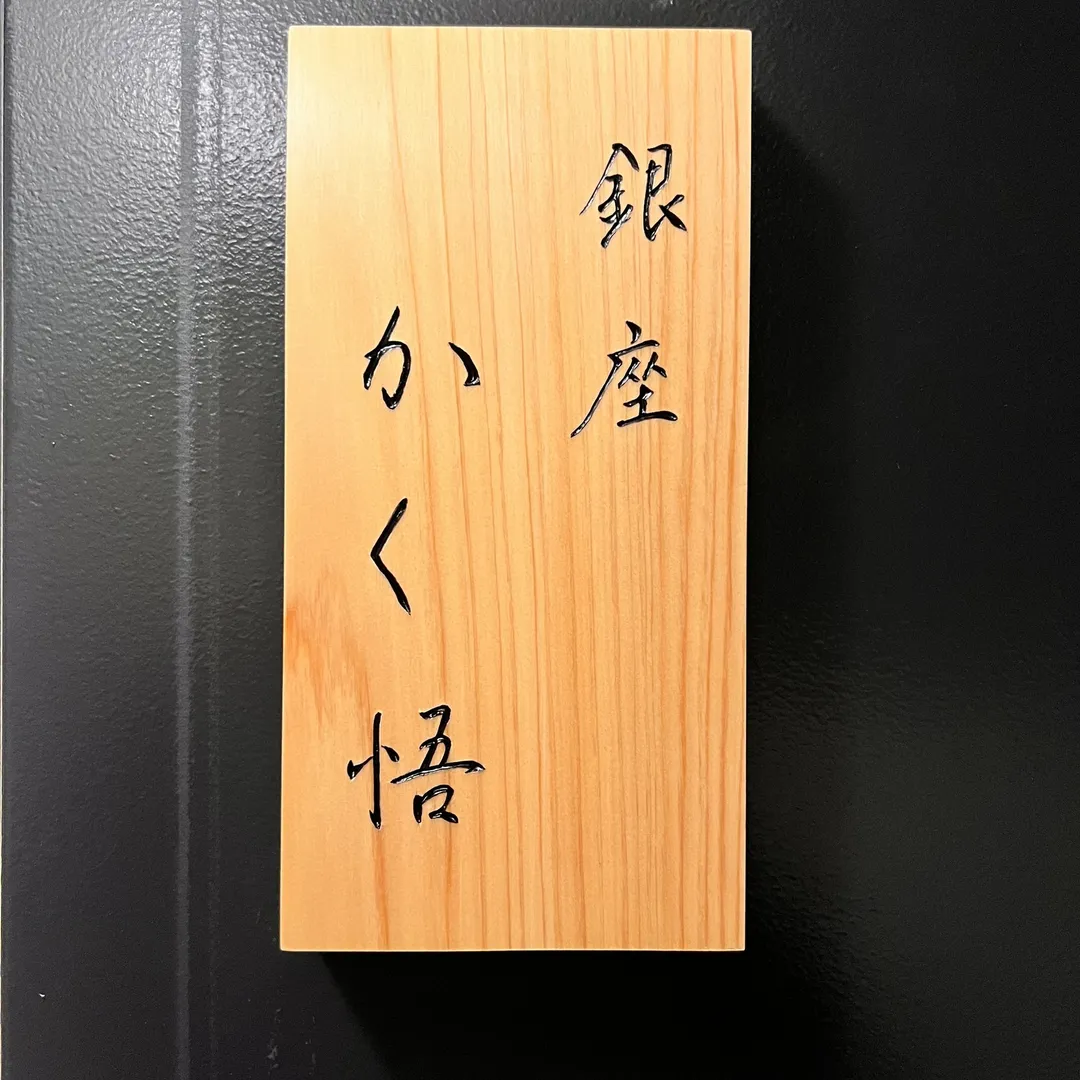 銀座
かく悟